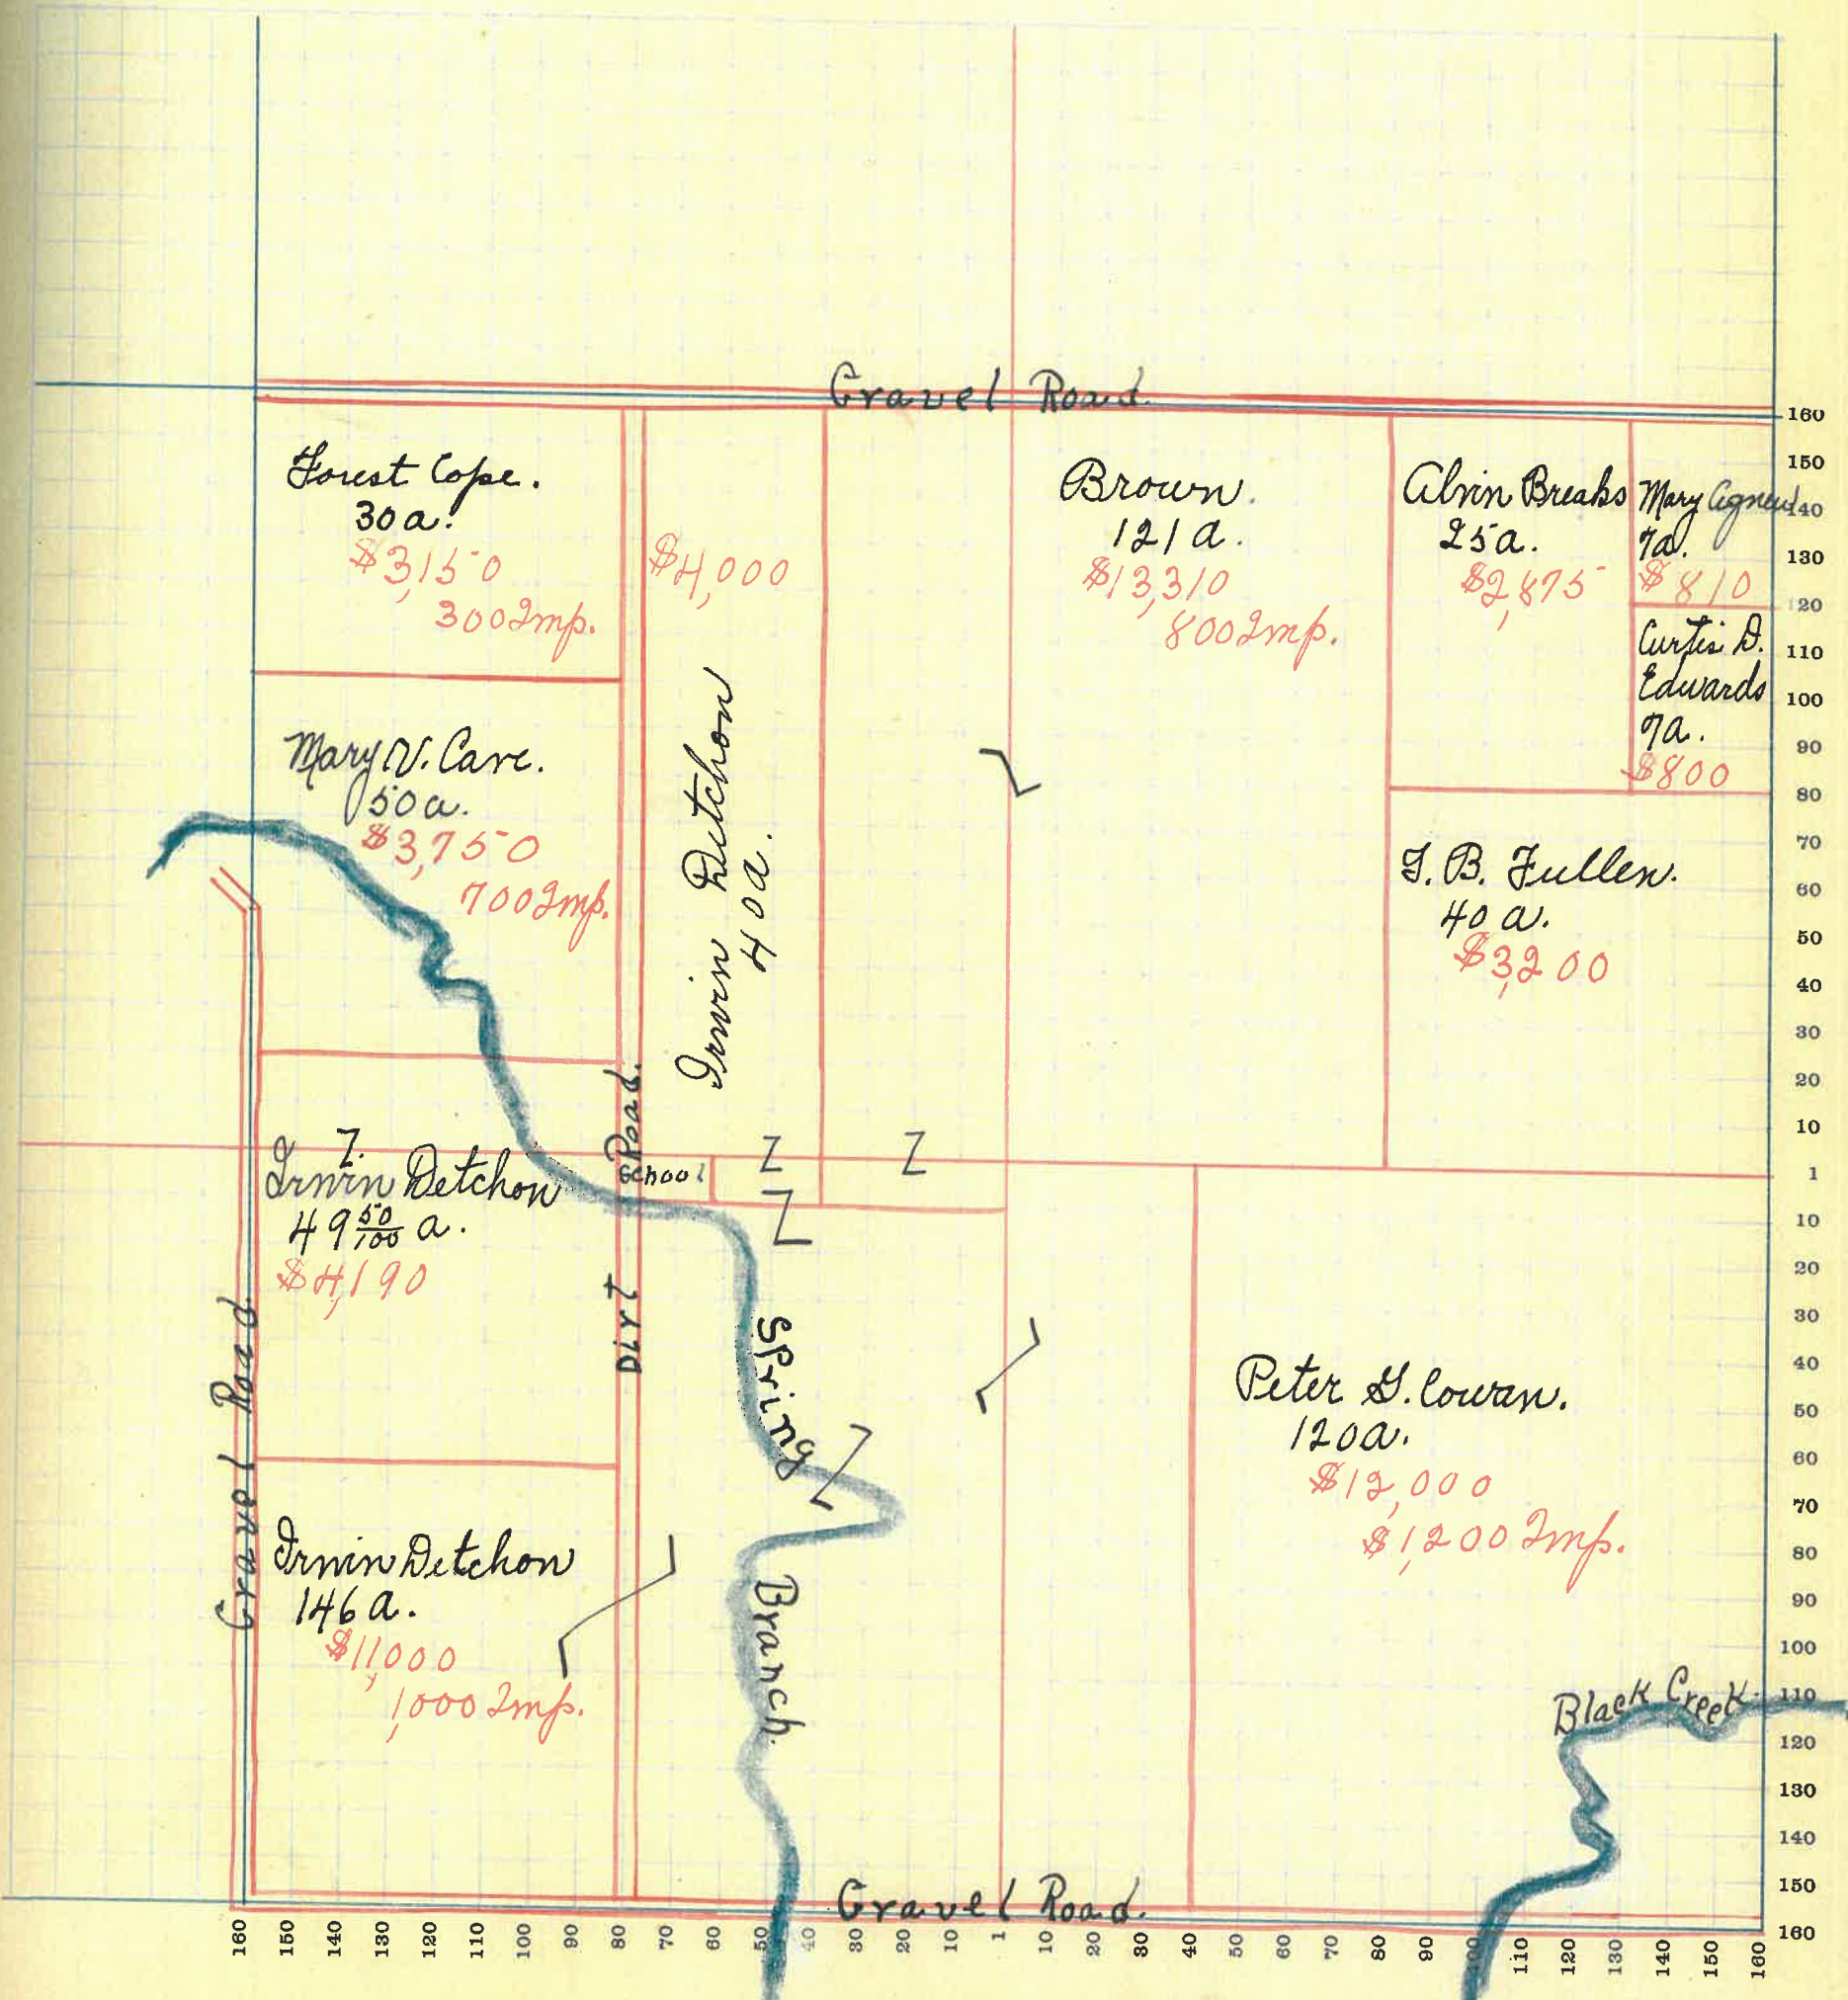 Gravel Road.
Forest Cope.
30a.
$3,150
300 Imp.
$4,000
Brown.
121a.
$13,310
800 Imp.
Alvin Breaks
25a.
$2,875
Mary Agnew
7a.
$810
Curtis D.
Edwards
7a.
$800
Mary V. Cave.
50a.
$3,750
700 Imp.
Irwin Detchon
40a.
T. B. Fullen.
40a.
$3,200
Dirt Road.
School
Irwin Detchon
49 50/100 a.
$4,190
Gravel Road
Spring Branch.
Peter G. Cowan.
120a.
$12,000
$1,200 Imp.
Irwin Detchon
146a.
$11,000
1,000 Imp.
Black Creek
Gravel Road.
160
150
140
130
120
110
100
90
80
70
60
50
40
30
20
10
1
10
20
30
40
50
60
70
80
90
100
110
120
130
140
150
160
160 150 140 130 120 110 100 90 80 70 60 50 40 30 20 10 1 10 20 30 40 50 60 70 80 90 100 110 120 130 140 150 160